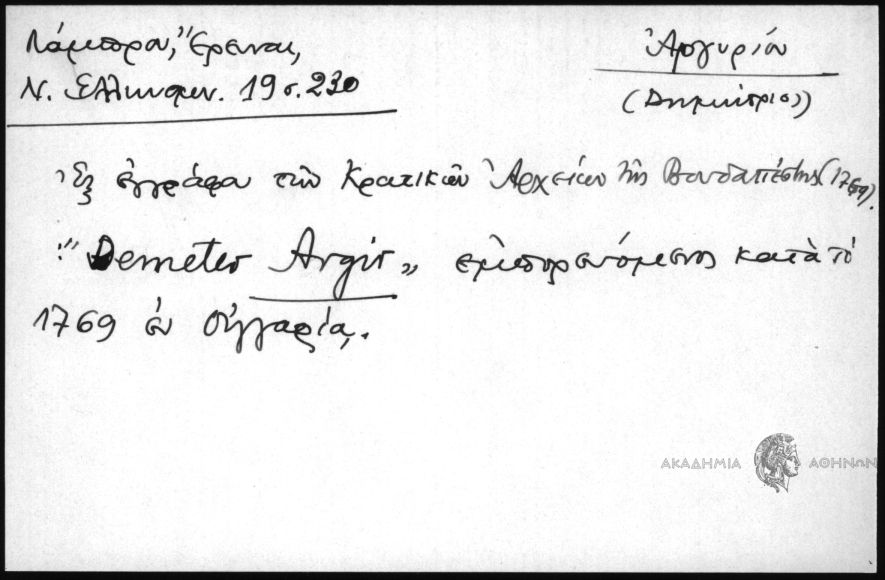 Λάμπρου, Ἔρευναι,
Ν. Ἑλληνομν. 19 σ. 230
Ἀργυρίου
(Δημήτριος)
Ἐξ ἐγγράφου τῶν Κρατικῶν Ἀρχείων τῆς Βουδαπέστης (1769).
"Demeter Argir„ ἐμπορευόμενος κατὰ τὸ
1769 ἐν Οὑγγαρίᾳ.
ΑΚΑΔΗΜΙΑ ΑΘΗΝΩΝ